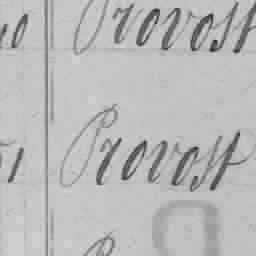 40 Provost
51 Provost